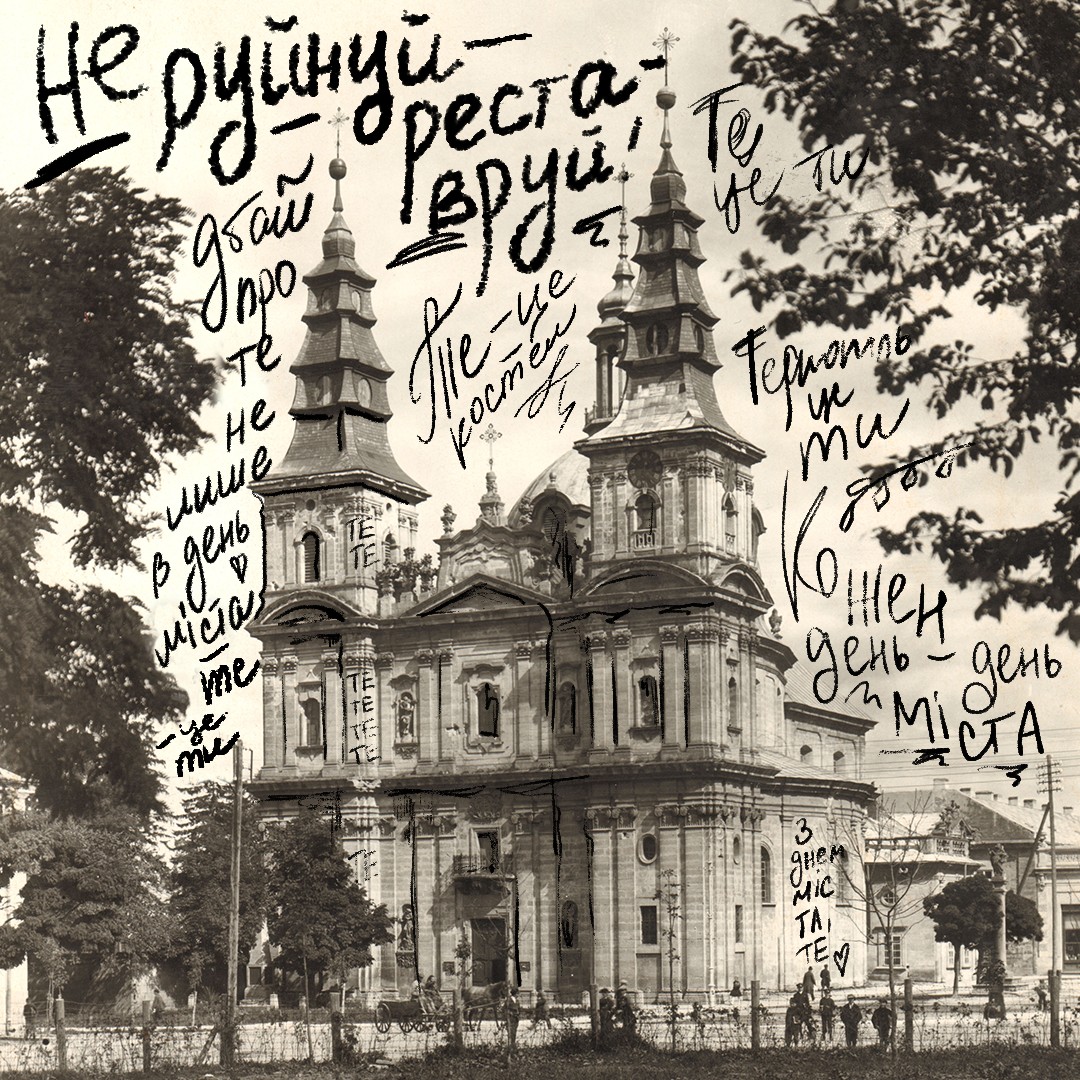 Не руйнуй –
– реста-
вруй!
дбай
про
те
не
лише
в день
міста
– те
– це
ти
Те – це
костел
Те
це ти
Тернопіль
це
ти
Кожен
день – день
міста
ТЕ
ТЕ
ТЕ
ТЕ
ТЕ
ТЕ
ТЕ
З
днем
міс
та,
ТЕ